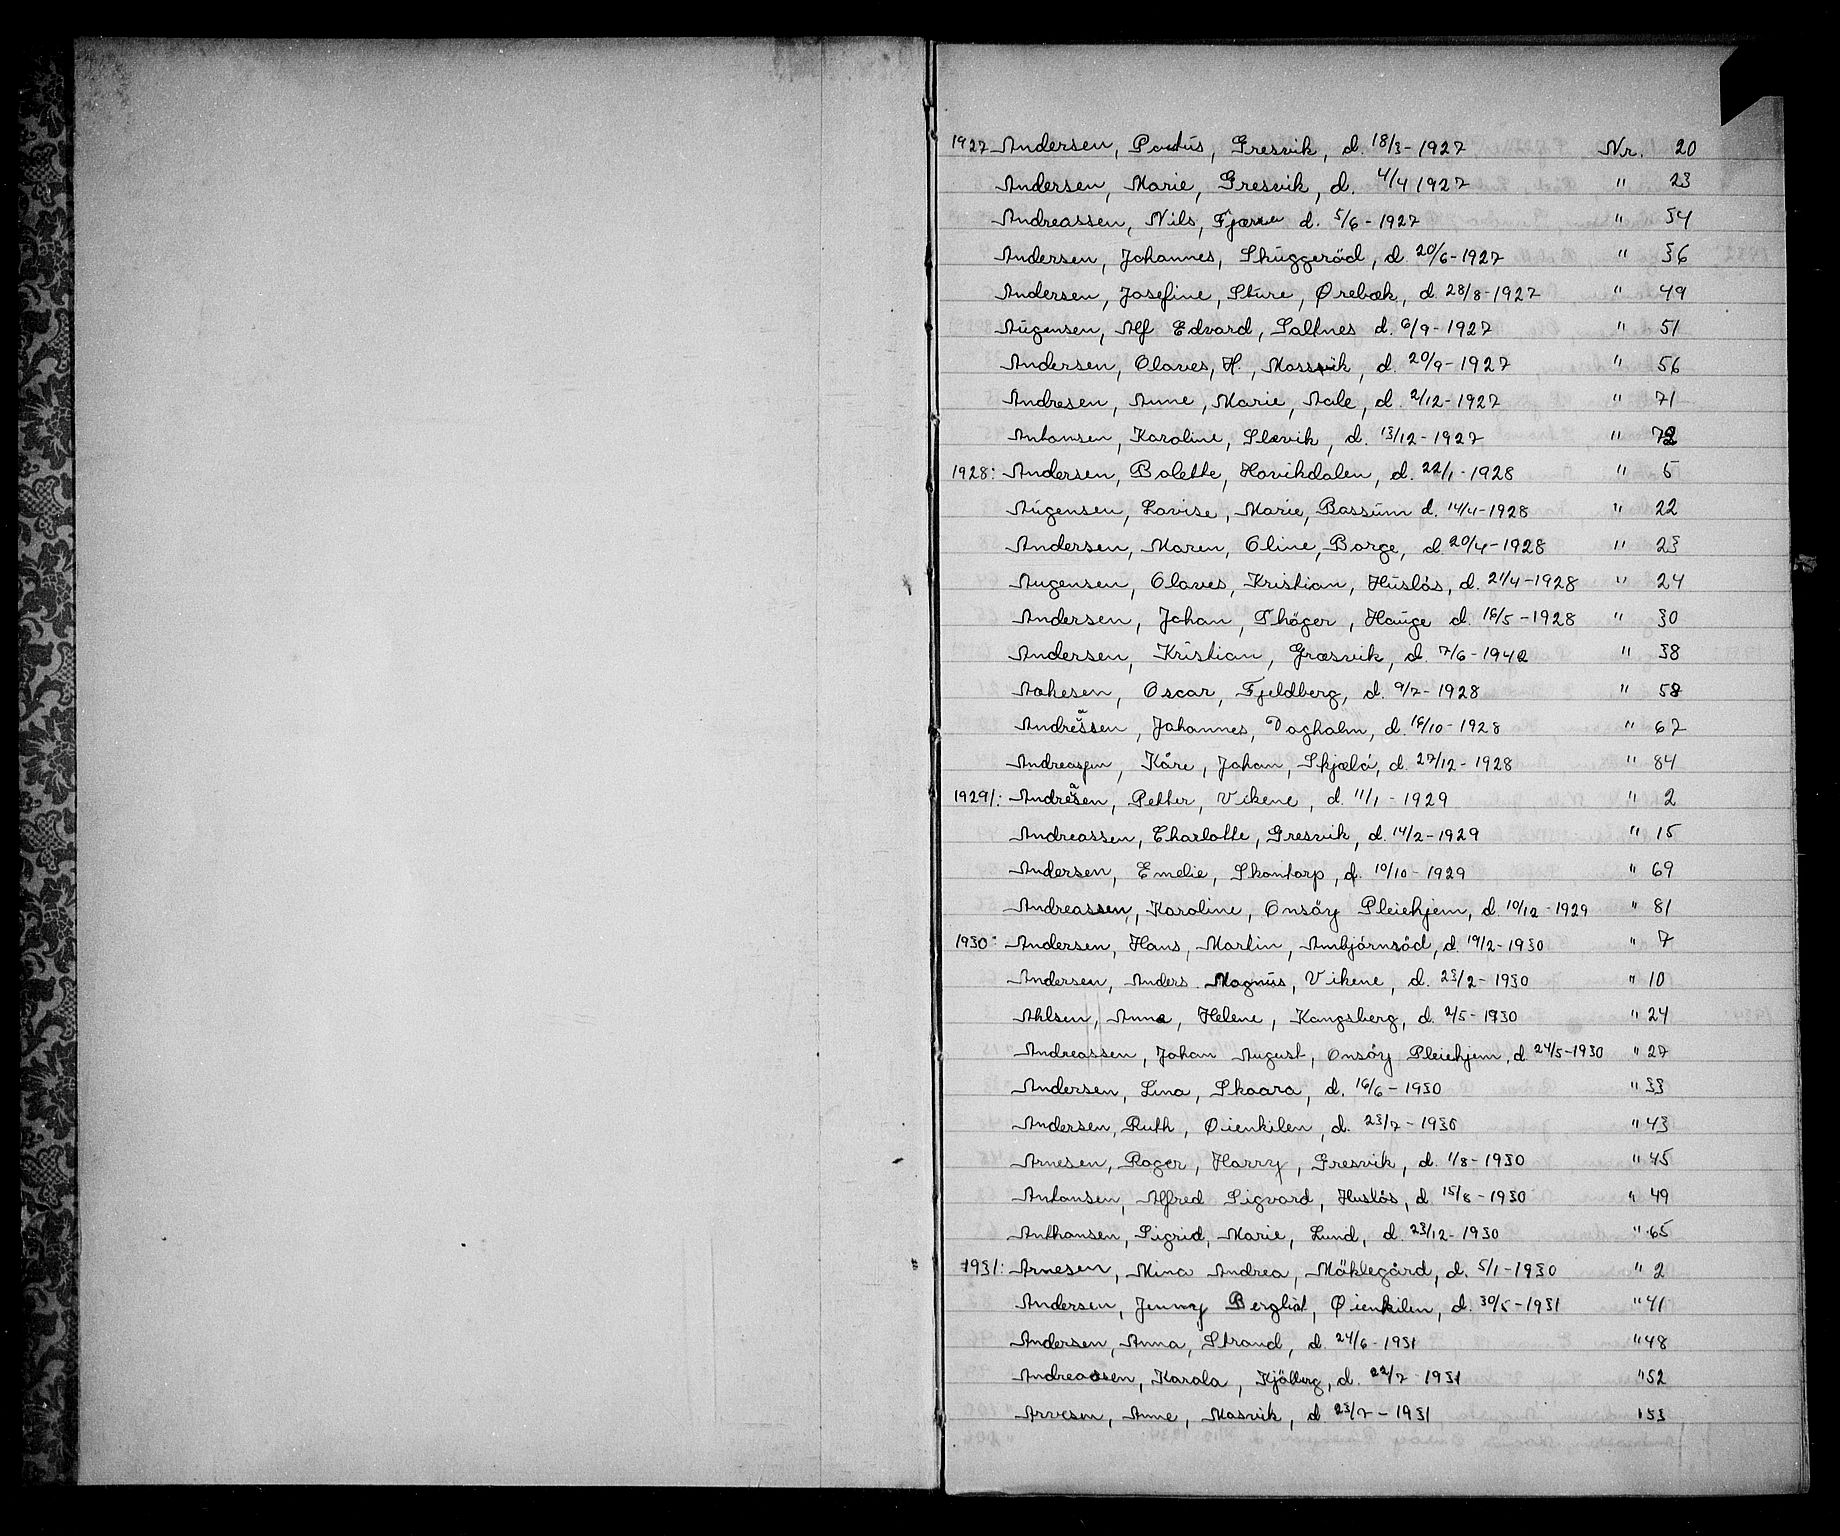 1927 Andersen, Paulus, Gresvik, d. 18/3 - 1927 Nr. 20
Andersen, Marie, Gresvik, d. 4/4 1927 " 23
Andreassen, Nils, Fjære d. 5/6 - 1927 " 34
Andersen, Johannes, Skuggeröd, d. 20/6 - 1927 " 36
Andersen, Josefine, Sture, Ørebæk, d. 28/8 - 1927 " 49
Augensen, Alf Edvard, Saltnes d. 6/9 - 1927 " 51
Andersen, Olaves, H., Mossvik, d. 20/9 - 1927 " 56
Andresen, Anne, Marie, Aale, d. 2/12 - 1927 " 71
Antonsen, Karoline, Slevik, d. 13/12 - 1927 " 72
1928: Andersen, Bolette, Havikdalen, d. 22/1 - 1928 " 5
Augensen, Lovise, Marie, Bossum d. 14/4 - 1928 " 22
Andersen, Maren, Oline, Borge, d. 20/4 - 1928 " 23
Augensen, Olaves, Kristian, Huslös, d. 21/4 - 1928 " 24
Andersen, Johan, Thöger, Hauge d. 16/5 - 1928 " 30
Andersen, Kristian, Græsvik, d. 7/6 - 1942 " 38
Aakesen, Oscar, Fjeldberg, d. 9/7 - 1928 " 58
Andreassen, Johannes, Dagholm, d. 16/10 - 1928 " 67
Andreassen, Kåre, Johan, Skjælö, d. 27/12 - 1928 " 84
1929/: Andreasen, Petter, Vikene, d. 11/1 - 1929 " 2
Andreassen, Charlotte, Gresvik, d. 14/2 - 1929 " 15
Andersen, Emelie, Skontorp, d. 10/10 - 1929 " 69
Andreassen, Karoline, Onsöy Pleiehjem, d. 10/12 - 1929 " 81
1930: Andersen, Hans, Martin, Ambjörnröd, d. 19/2 - 1930 " 7
Andersen, Anders Magnus, Vikene, d. 23/2 - 1930 " 10
Ahlsen, Anna, Helene, Kongsberg, d. 2/5 - 1930 " 24
Andreassen, Johan August, Onsöy Pleiehjem, d. 24/5 - 1930 " 27
Andersen, Lina, Skaara, d. 16/6 - 1930 " 33
Andersen, Ruth, Øienkilen, d. 23/7 - 1930 " 43
Arnesen, Roger, Harry, Gresvik, d. 1/8 - 1930 " 45
Antonsen, Alfred Sigvard, Huslös, d. 15/8 - 1930 " 49
Anthonsen, Sigrid, Marie, Lund, d. 23/12 - 1930 " 65
1931: Arnesen, Mina Andrea, Möklegård, d. 5/1 - 1930 " 2
Andersen, Jenny Bergliot, Øienkilen, d. 30/5 - 1931 " 41
Andersen, Anna, Strand, d. 24/6 - 1931 " 48
Andreassen, Karola, Kjölberg, d. 22/7 - 1931 " 52
Arvesen, Anne, Mosvik, d. 23/7 - 1931 " 53